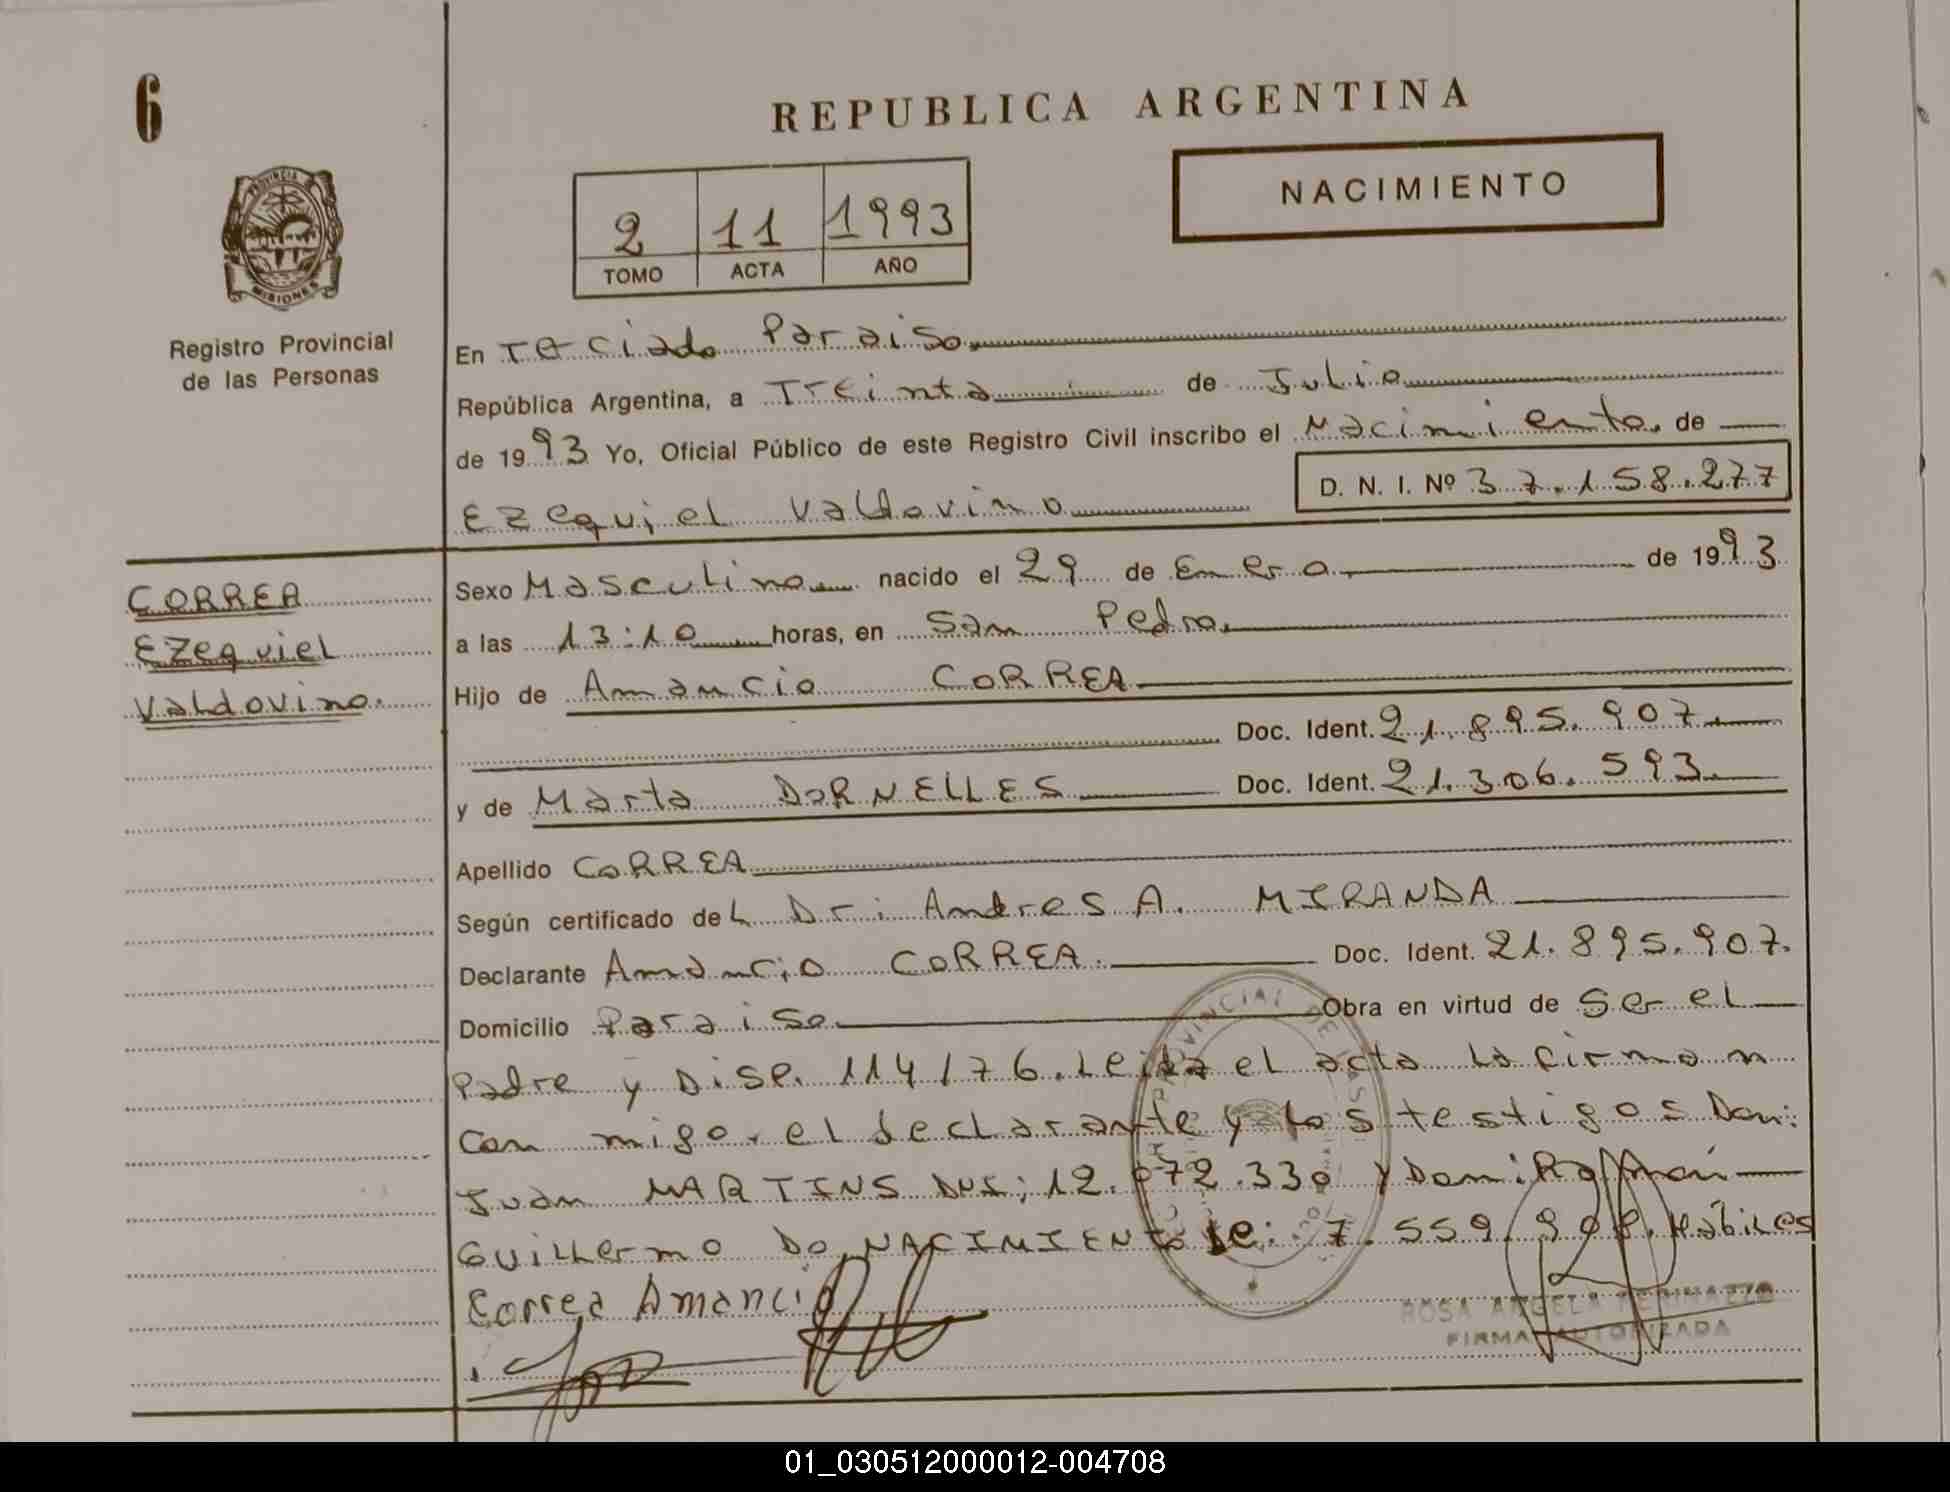 6
REPUBLICA ARGENTINA
NACIMIENTO
2 11 1993
TOMO ACTA AÑO
PROVINCIA
MISIONES
Registro Provincial
de las Personas
En Terciado Paraiso.
República Argentina, a Treinta de Julio
de 1993 Yo, Oficial Público de este Registro Civil inscribo el Nacimiento. de
Ezequiel Valdovino D. N. I. Nº 37.158.277
CORREA
Ezequiel
Valdovino.
Sexo Masculino nacido el 29 de Enero de 1993
a las 13:10 horas, en San Pedro.
Hijo de Amancio CORREA
Doc. Ident. 21.895.907
y de Marta DORNELLES Doc. Ident. 21.306.593
Apellido CORREA
Según certificado del Dr: Andres A. MIRANDA
Declarante Amancio CORREA. Doc. Ident. 21.895.907.
Domicilio Paraiso Obra en virtud de Ser el
Padre y Disp. 114/76. Leida el acta la firman
conmigo. el declarante y los testigos Don:
Juan MARTINS DNI: 12.072.330 y Don:
Guillermo DO NACIMIENTO le: 7.559.908. Habiles
Correa Amancio
ROSA ANGELA
FIRMA AUTORIZADA
01_030512000012-004708